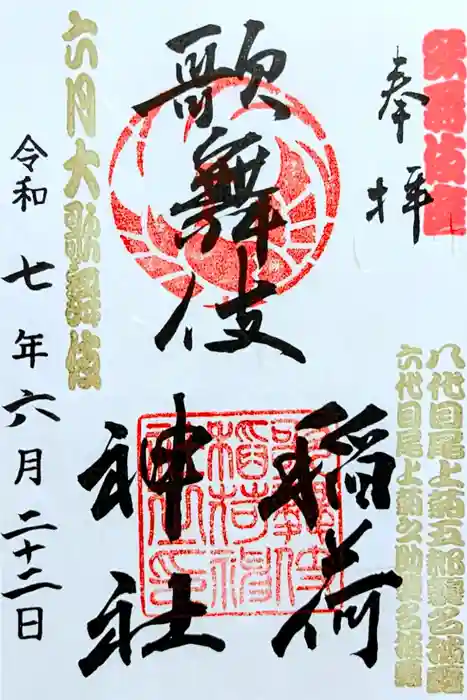 歌舞伎座
奉拝
八代目尾上菊五郎襲名披露
六代目尾上菊之助襲名披露
歌舞伎
稲荷
神社
歌舞伎稲荷神社之印
六月大歌舞伎
令和七年六月二十二日